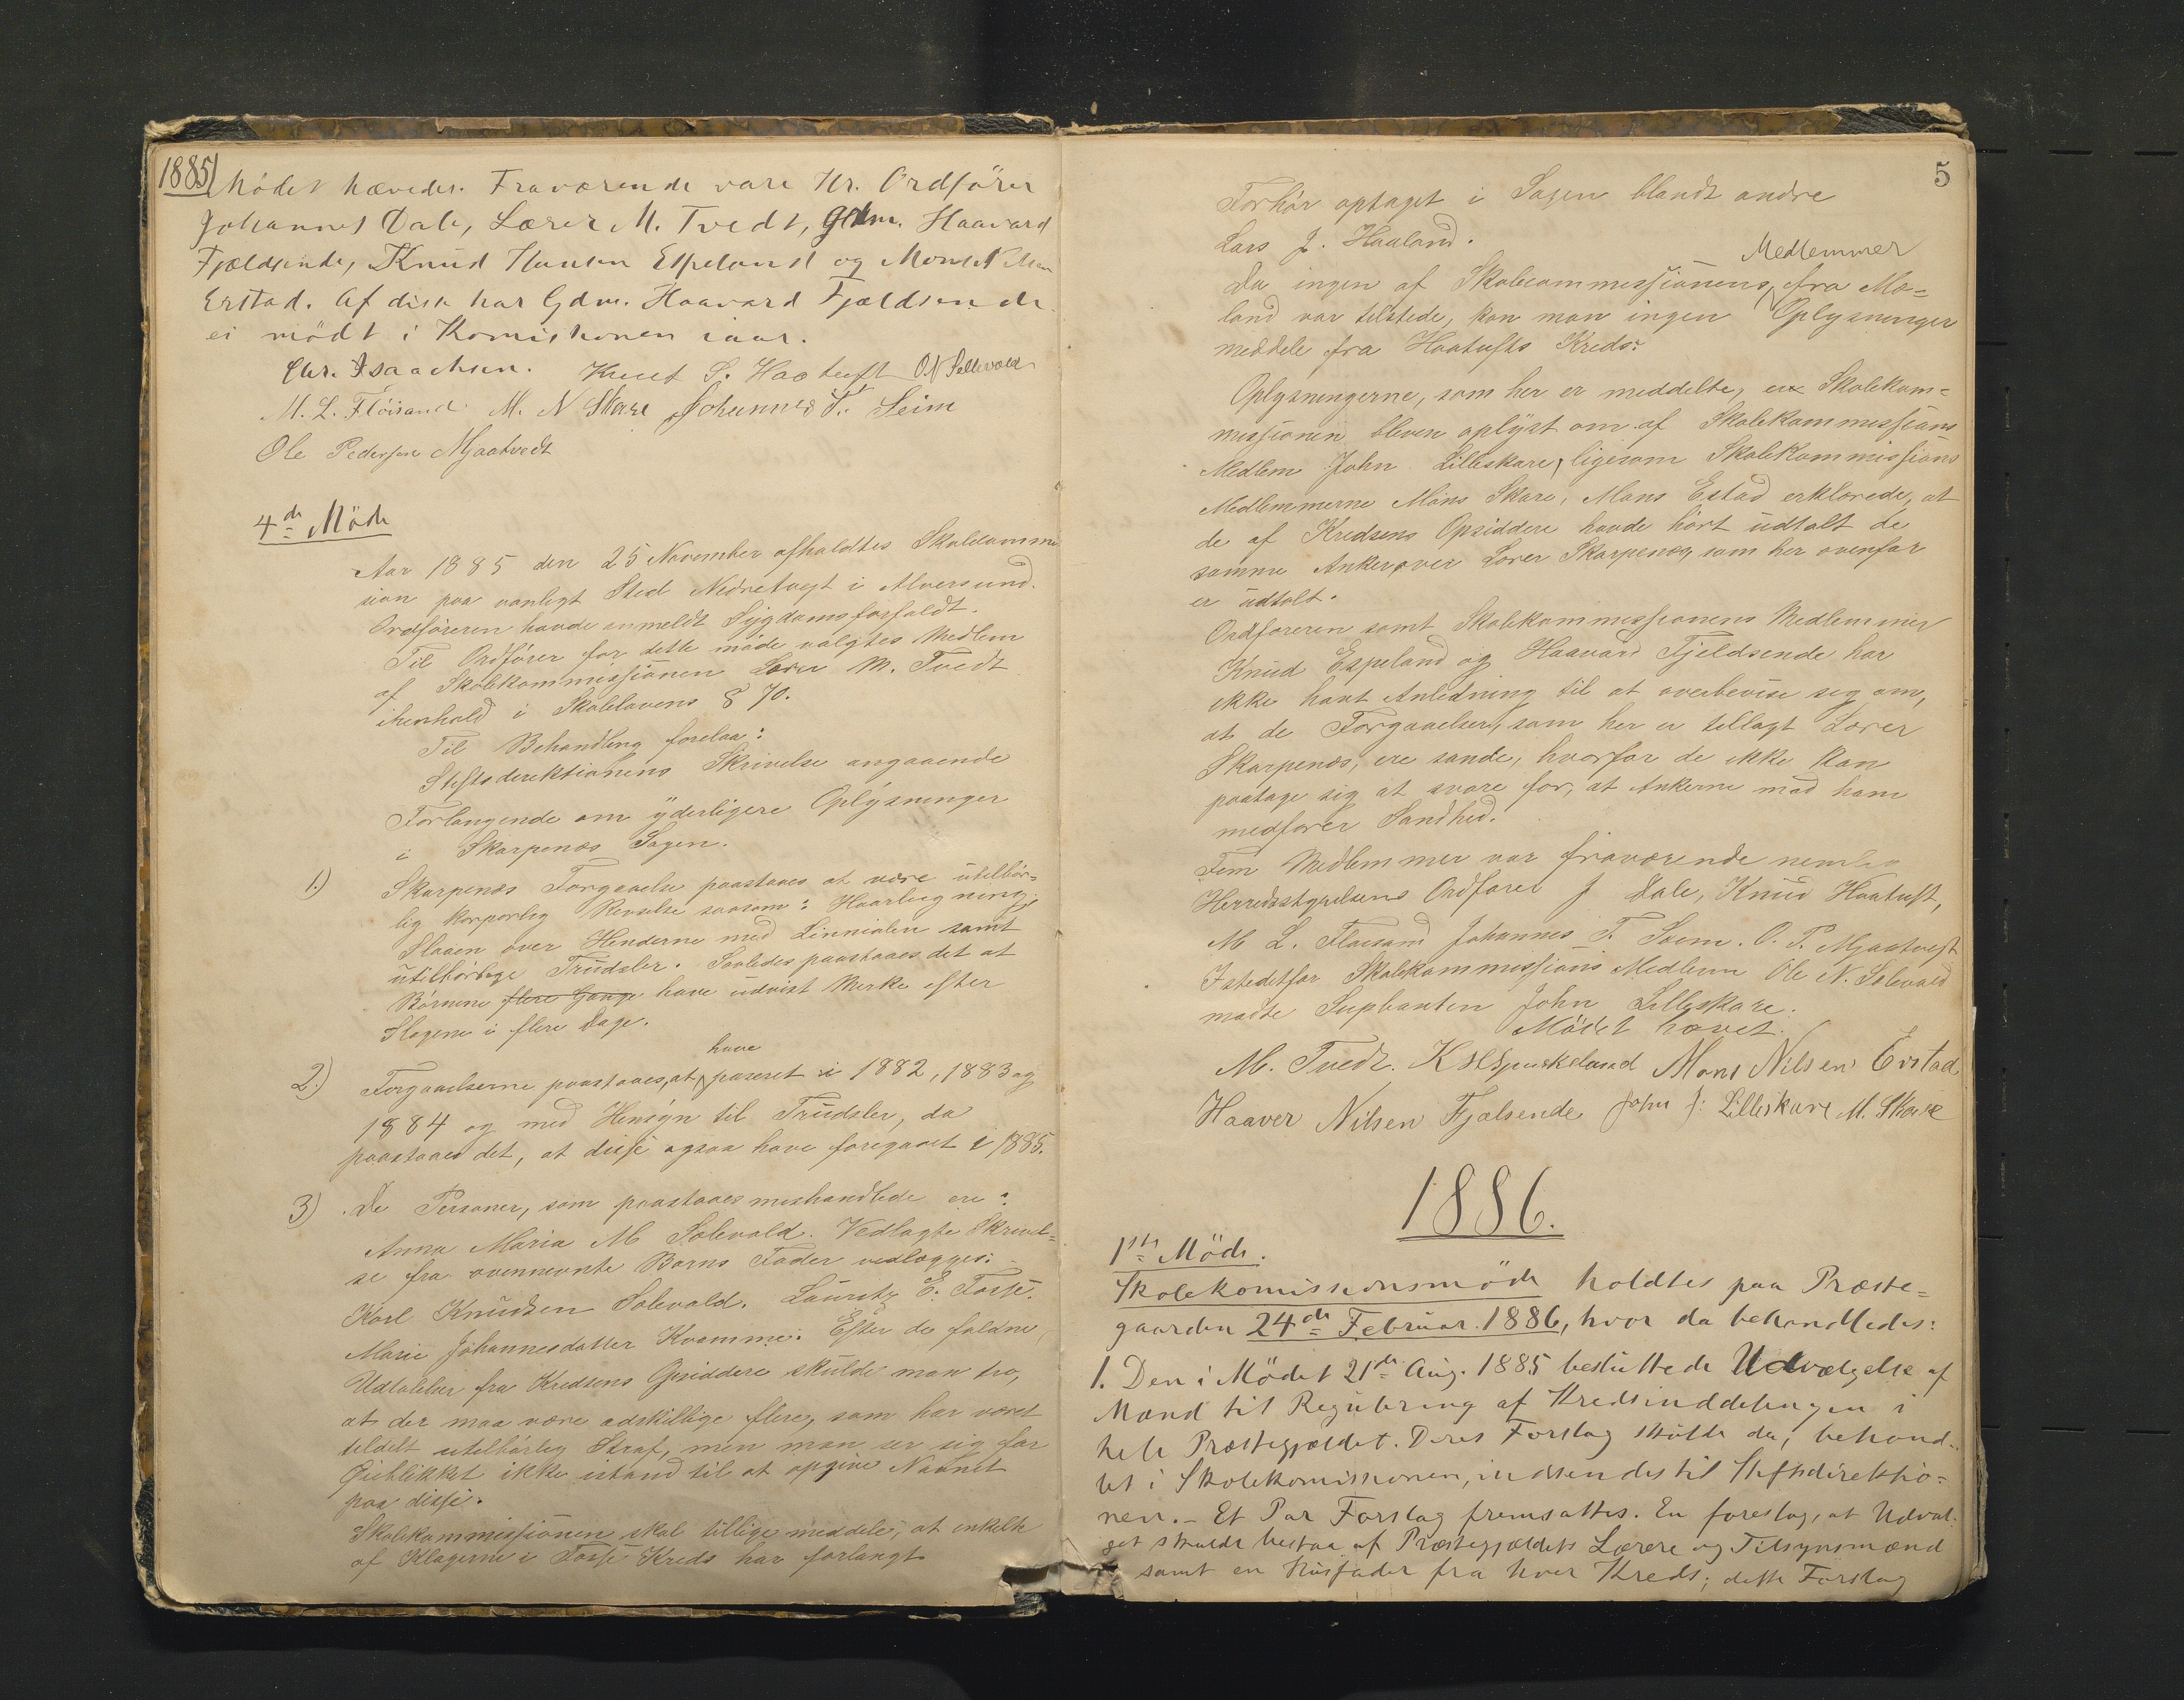 1885
Mödet hævedes. Fraværende vare Hr. Ordförer
Johannes Dale, Lærer M. Tvedt, Gdm. Haavard
Fjældsende, Knud Hansen Espeland og Mons Nilsen
Erstad. Af disse har Gdm. Haavard Fjældsende
ei mödt i Komissionen iaar.
Chr. Isaachsen. Knut S. Haatuft O N Sellevold
M. L. Flöisand M. N Skare Johannes T. Seim
Ole Pedersen Mjaatvedt
4de Möde
Aar 1885 den 25 November afholdtes Skolecommis
sion paa vanligt Sted Nedretvegt i Alversund.
Ordföreren havde anmeldt Sygdomsforfaldt.
Til Ordförer for dette möde valgtes Medlem
af Skolekommissionen Lærer M. Tvedt
ihenhold i Skolelovens § 70.
Til Behandling forelaa:
Stiftsdirektionens Skrivelse angaaende
Forlangende om yderligere Oplysninger
i Skarpenæs Sagen.
1.) Skarpenæs Forgaaelse paastaaes at være utilbör-
lig korporlig Revselse saasom: Haarlugning,
Slaaen over Henderne med Linnialen samt
utilbörlige Trudsler. Saaledes paastaaes det at
Börnene flere Gange have udvist Merke efter
Slagene i flere Dage.
have
2.) Forgaaelserne paastaaes, at paseret i 1882, 1883 og
1884 og med Hensyn til Trudsler, da
paastaaes det, at disse ogsaa have foregaaet i 1885.
3) De Personer, som paastaaes mishandlede ere:
Anna Maria M Solevold. Vedlagte Skrivel-
se fra ovennevnte Barns Fader vedlægges.
Karl Knudsen Solevold. Lauritz E. Fosse.
Marie Johannesdatter Kvamme. Efter de faldne
Udtalelser fra Kredsens Opsiddere skulde man tro,
at der maa være adskillige flere, som har været
tildelt utilbörlig Straf, men man ser sig for
Öieblikket ikke istand til at opgive Navnet
paa disse.
Skolekommissionen skal tillige meddele, at enkelte
af Klagerne i Fosse Kreds har forlangt
5
Forhör optaget i Sagen blandt andre
Lars J. Haaland.
Medlemmer
Da ingen af Skolecommissionens fra Mæ-
land var tilstede, kan man ingen Oplysninger
meddele fra Haatufts Kreds.
Oplysningerne, som her er meddelte, er Skolekom-
missionen bleven oplyst om af Skolekommissions
Medlem John Lilleskare, ligesom Skolekommissions
Medlemmerne Mons Skare, Mons Estad erklærede, at
de af Kredsens Opsiddere havde hört udtalt de
samme Anker over Lærer Skarpenæs, som her ovenfor
er udtalt.
Ordföreren samt Skolekommissionens Medlemmer
Knud Espeland og Haavard Fjeldsende har
ikke havt Anledning til at overbevise sig om,
at de Forgaaelser, som her er tillagt Lærer
Skarpenæs, ere sande, hvorfor de ikke kan
paatage sig at svare for, at Ankerne mod ham
medförer Sandhed.
Fem Medlemmer var fraværende nemlig
Herredsstyrelsens Ordförer J Dale, Knud Haatuft,
M L. Floisand Johannes T. Seim. O. P. Mjaatvedt
Istedetfor Skolekommissions Medlem Ole N. Solevold
mödte Suplianten John Lilleskare.
Mödet hævet.
M. Tvedt. K H Espeland Mons Nilsen Erstad
Haaver Nilsen Fjælsende John J. Lilleskare M. Skare
1886.
1ste Möde.
Skolekomissionsmöde holdtes paa Præste-
gaarden 24de Februar 1886, hvor da behandledes:
1. Den i Mödet 21de Aug. 1885 besluttede Udvælgelse af
Mænd til Regulering af Kredsinddelingen i
hele Præstegjældet. Deres Forslag skulde da, behand-
let i Skolekomissionen, indsendes til Stiftsdirektio-
nen. - Et Par Forslag fremsattes. En foreslog, at Udval-
get skulde bestaa af Præstegjældets Lærere og Tilsynsmænd
samt en Husfader fra hver Kreds; dette Forslag